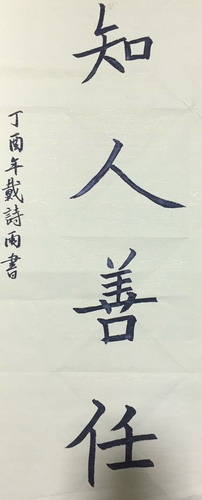 知人善任
丁酉年戴詩雨書